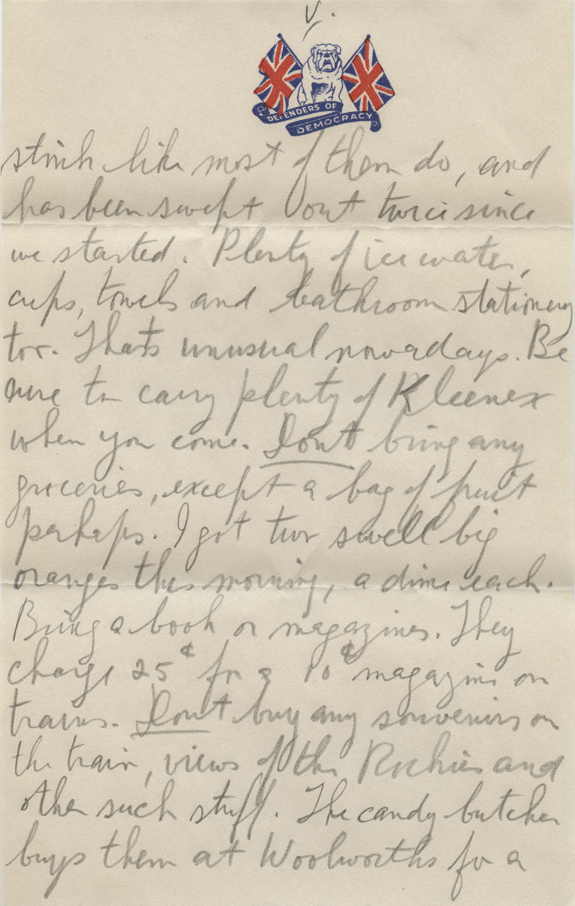 V.
DEFENDERS OF
DEMOCRACY
stink like most of them do, and
has been swept out twice since
we started. Plenty of ice water,
cups, towels and bathroom stationery
too. Thats unusual nowadays. Be
sure to carry plenty of Kleenex
when you come. Dont bring any
groceries, except a bag of fruit
perhaps. I got two swell big
oranges this morning, a dime each.
Bring a book or magazines. They
charge 25¢ for a 10¢ magazine on
trains. Dont buy any souvenirs on
the train, views of the Rockies and
other such stuff. The candy butcher
buys them at Woolworths for a